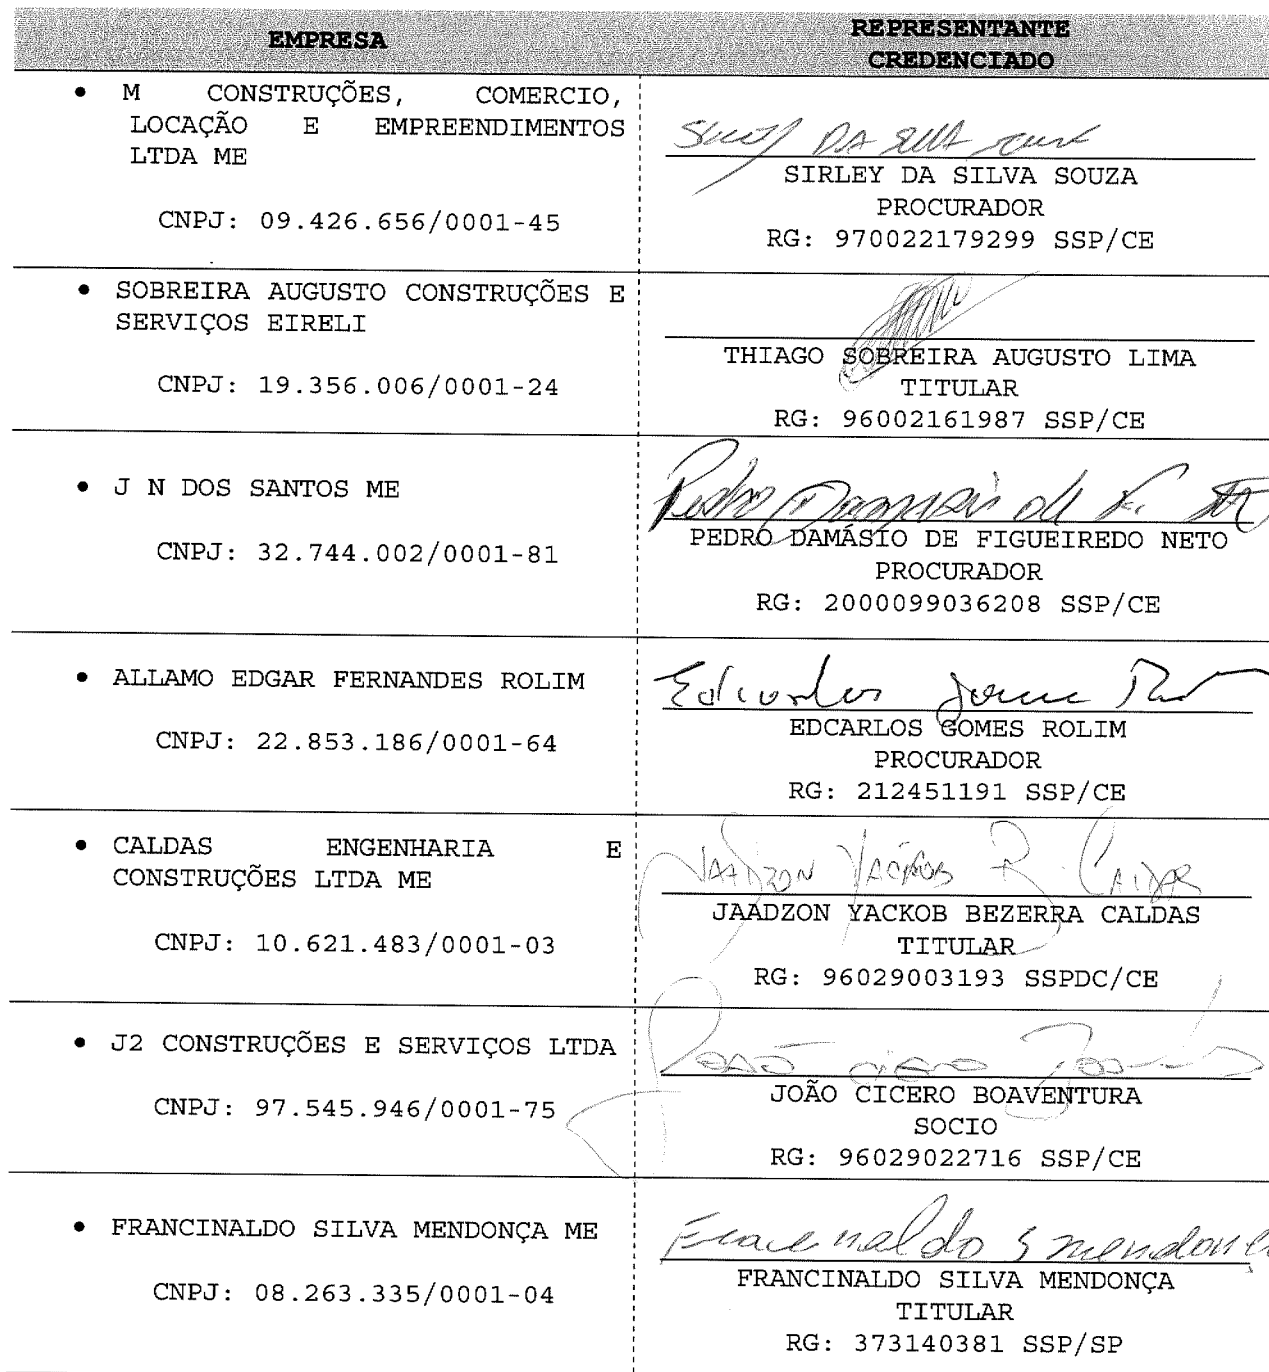 EMPRESA
REPRESENTANTE
CREDENCIADO
• M CONSTRUÇÕES, COMERCIO,
LOCAÇÃO E EMPREENDIMENTOS
LTDA ME
CNPJ: 09.426.656/0001-45
SIRLEY DA SILVA SOUZA
PROCURADOR
RG: 970022179299 SSP/CE
• SOBREIRA AUGUSTO CONSTRUÇÕES E
SERVIÇOS EIRELI
CNPJ: 19.356.006/0001-24
THIAGO SOBREIRA AUGUSTO LIMA
TITULAR
RG: 96002161987 SSP/CE
• J N DOS SANTOS ME
CNPJ: 32.744.002/0001-81
PEDRO DAMÁSIO DE FIGUEIREDO NETO
PROCURADOR
RG: 2000099036208 SSP/CE
• ALLAMO EDGAR FERNANDES ROLIM
CNPJ: 22.853.186/0001-64
EDCARLOS GOMES ROLIM
PROCURADOR
RG: 212451191 SSP/CE
• CALDAS ENGENHARIA E
CONSTRUÇÕES LTDA ME
CNPJ: 10.621.483/0001-03
JAADZON YACKOB B. CALDAS
JAADZON YACKOB BEZERRA CALDAS
TITULAR
RG: 96029003193 SSPDC/CE
• J2 CONSTRUÇÕES E SERVIÇOS LTDA
CNPJ: 97.545.946/0001-75
JOÃO CICERO BOAVENTURA
SOCIO
RG: 96029022716 SSP/CE
• FRANCINALDO SILVA MENDONÇA ME
CNPJ: 08.263.335/0001-04
FRANCINALDO SILVA MENDONÇA
TITULAR
RG: 373140381 SSP/SP